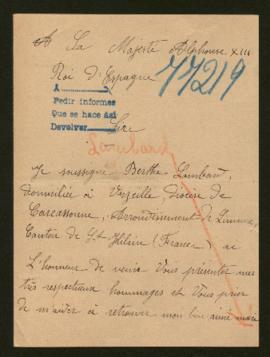 A La Majesté Alphonse XIII
Roi d'Espagne
77219
A
Pedir informes
Que se hace así
Devolver
Sire
Lambard
Je soussigné Berthe Lambard,
domiciliée à Verzeille, diocèse de
Carcassonne, Arrondissement de Limoux,
Canton de St Hilaire (France), ai
L'honneur de venir Vous présenter mes
très respectueux hommages et Vous prier
de m'aider à retrouver mon bien aimé mari